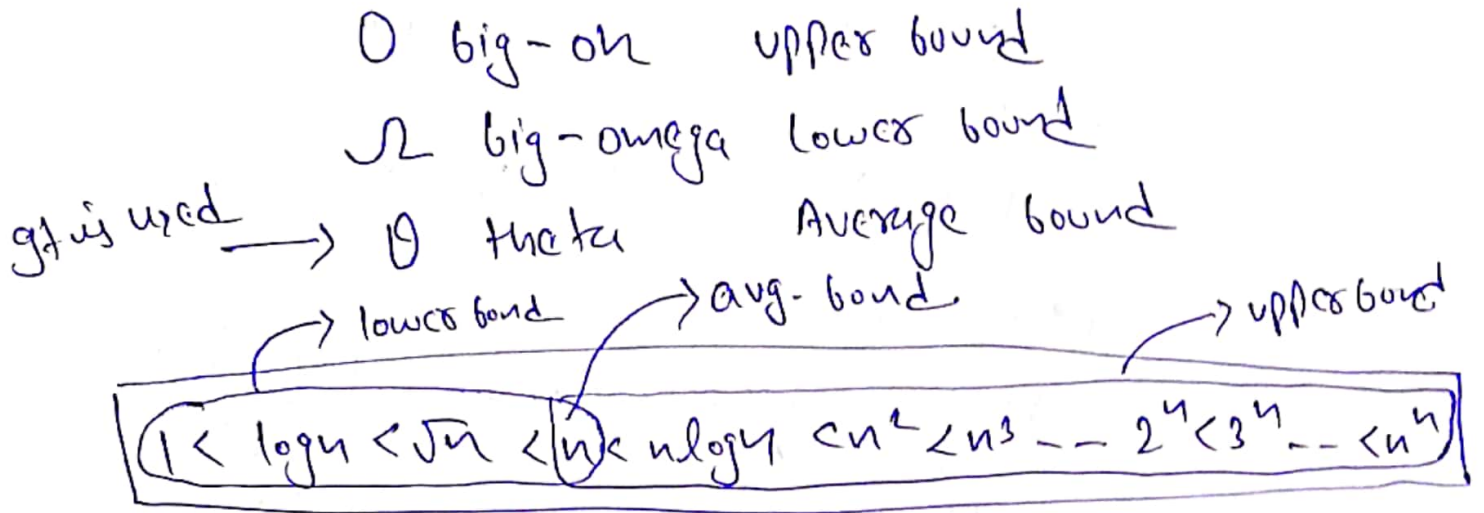 O big-oh upper bound
Ω big-omega lower bound
It is used → θ theta Average bound
→ lower bond → avg. bond → upper bound
1 < log n < √n < n < n log n < n² < n³ -- 2ⁿ < 3ⁿ -- < nⁿ